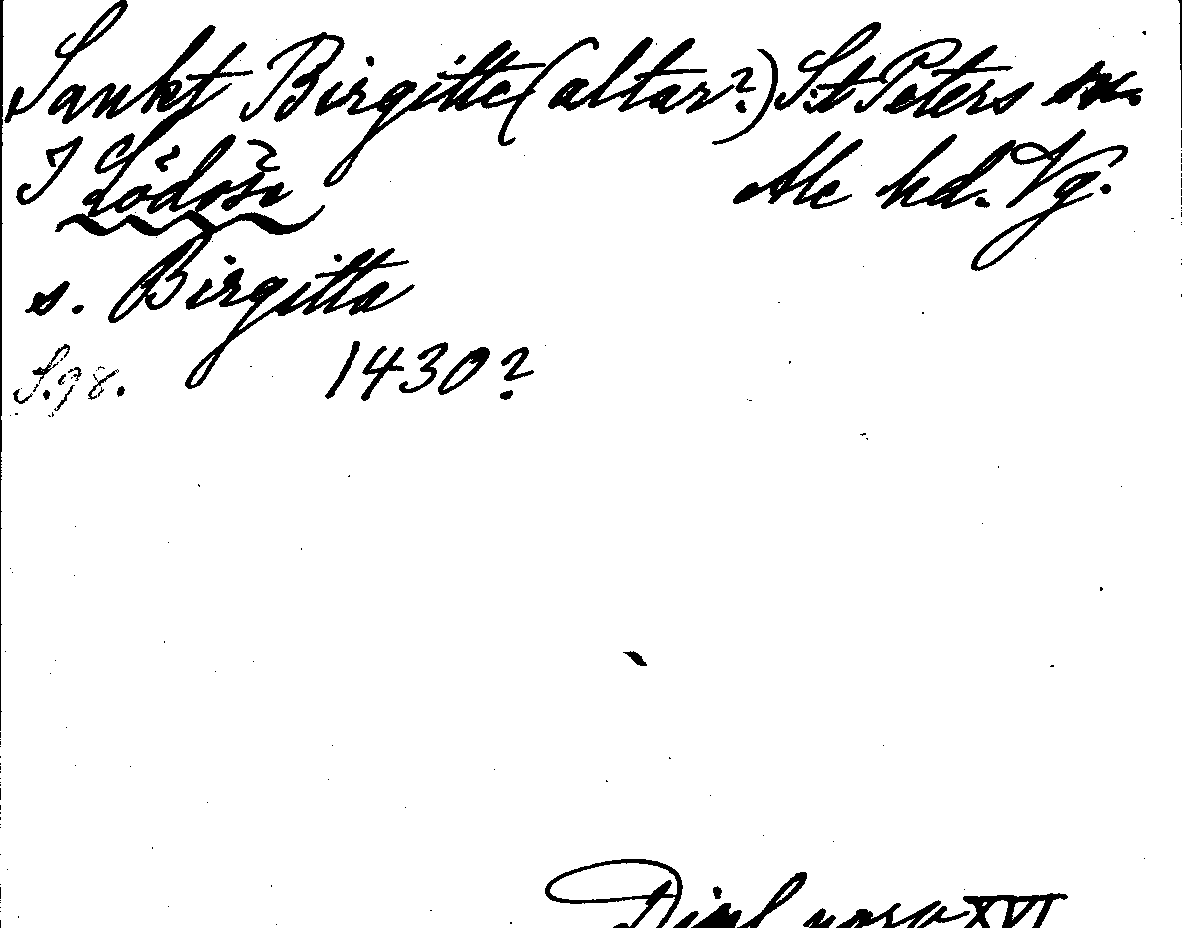 Sankt Birgitte (altar?) S:t Peters sn.
I Lödöse Ale hd. Vg.
s. Birgitta
S. 98. 1430?
Dipl. norv XVI